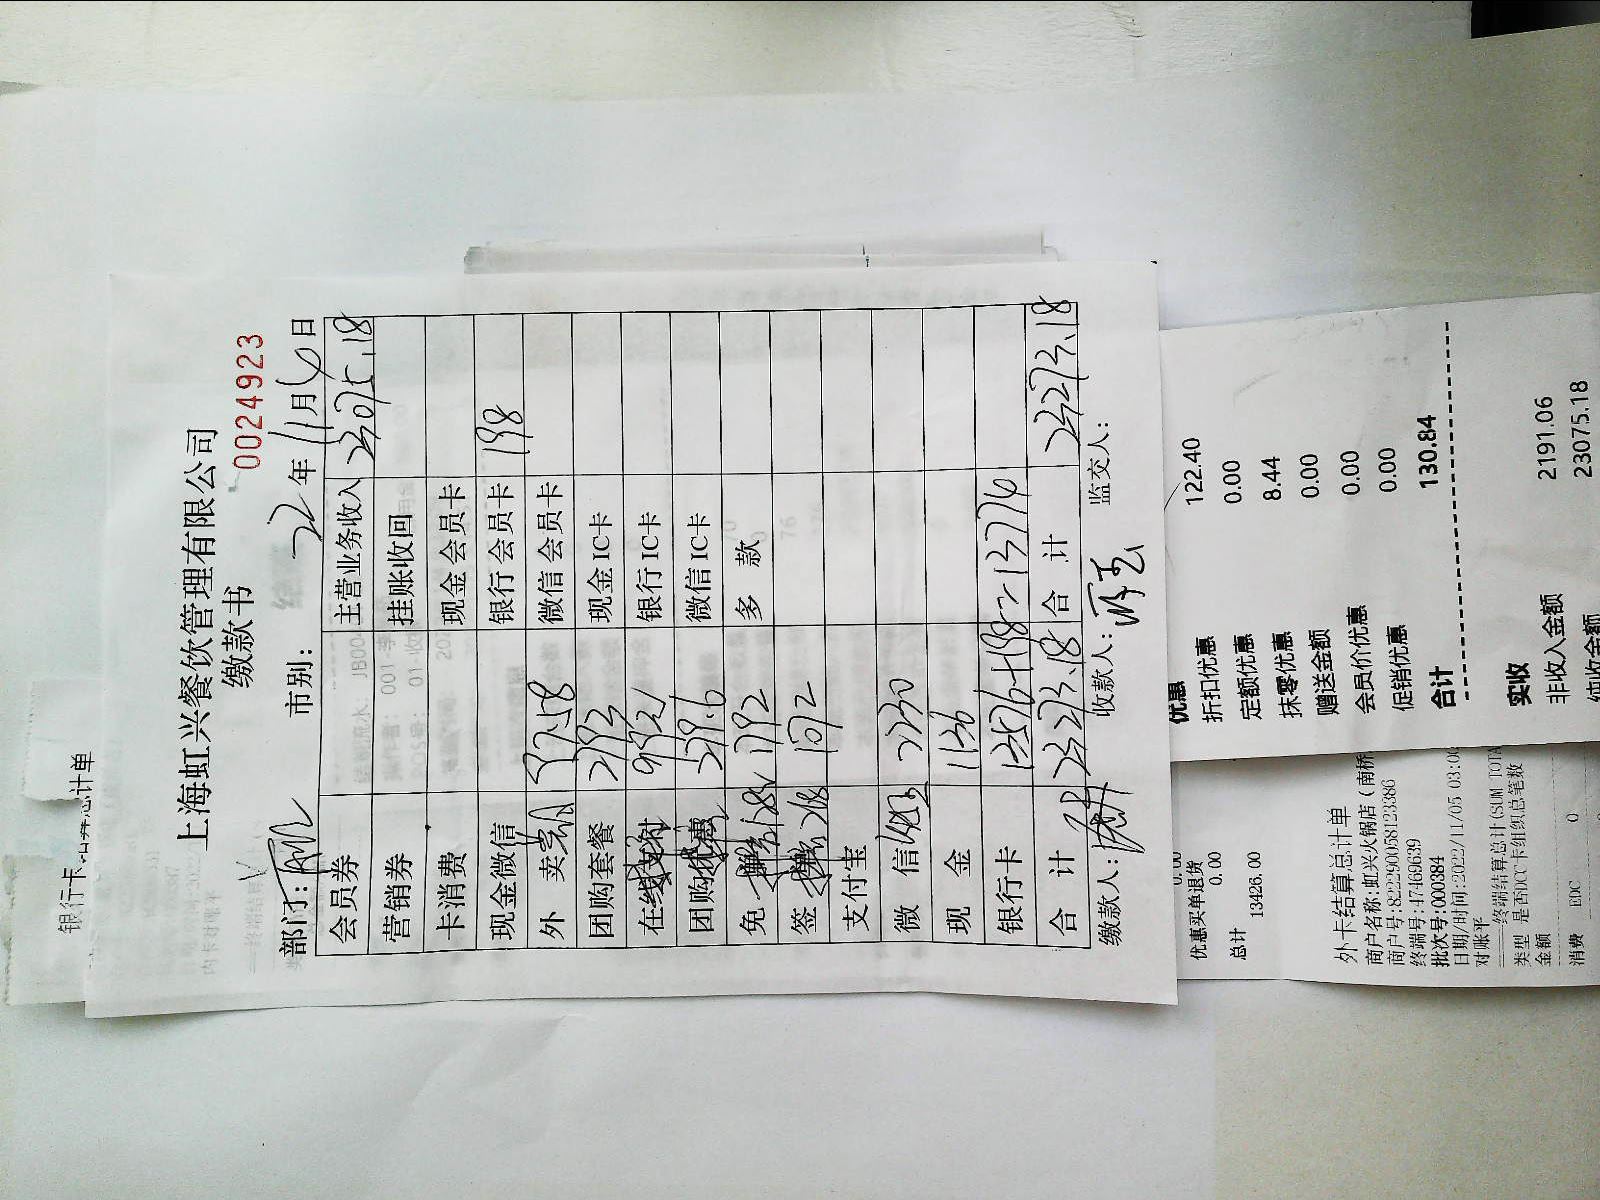 上海虹兴餐饮管理有限公司
缴款书
0024923
部门: 市别: 22年11月6日
会员券 主营业务收入 23075.18
营销券 挂账收回
卡消费 现金会员卡
现金微信 银行会员卡 198
外卖 3775.58 微信会员卡
团购套餐 2193 现金IC卡
在线支付 银行IC卡
团购优惠 529.6 微信IC卡
免 1792 多款
签 1072
支付宝
微信 2230
现金 1136
银行卡 12576+198=13774
合计 23273.18 合计 23273.18
缴款人: 收款人: 监交人:
优惠
折扣优惠 122.40
定额优惠 0.00
抹零优惠 8.44
赠送金额 0.00
会员价优惠 0.00
促销优惠 0.00
合计 130.84
实收
非收入金额 2191.06
23075.18
0.00
优惠买单退货
0.00
总计
13426.00
外卡结算总计单
商户名称:虹兴火锅店(南桥
商户号:822290058123386
终端号:47469639
批次号:000384
日期/时间:2022/11/05 03:0
对账平
终端结算总计(SUM TOTA
类型 是否DCC卡组织总笔数
金额
消费 EDC 0
银行卡
总计单